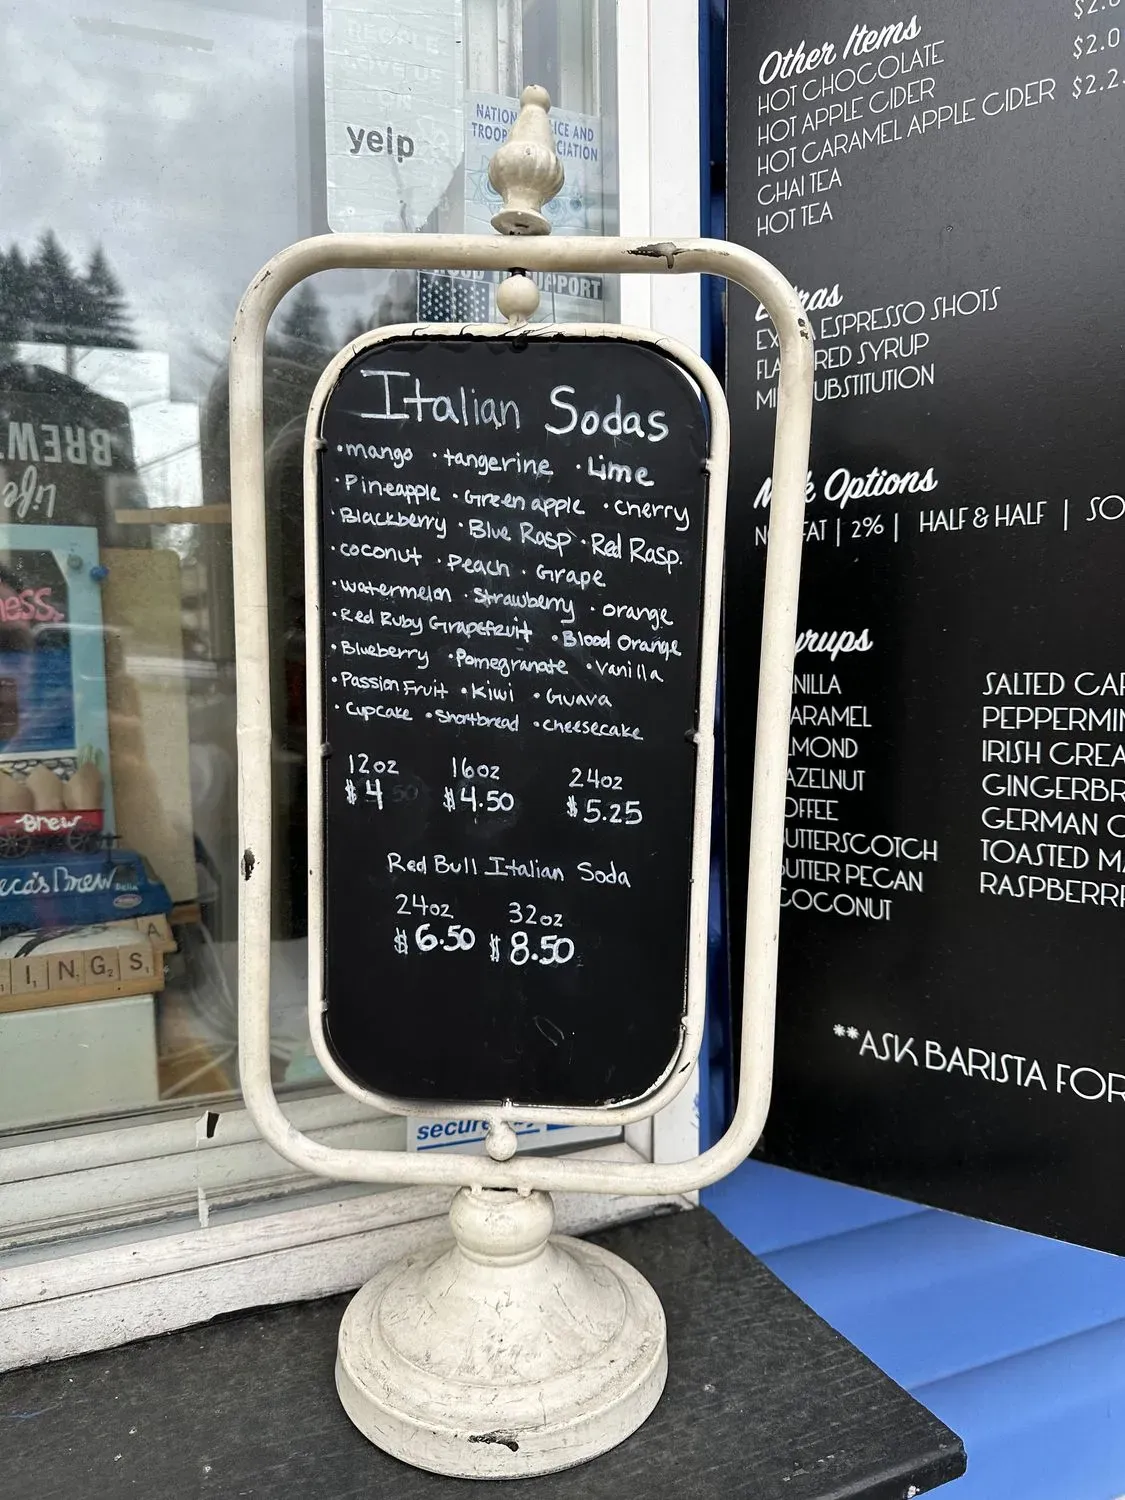 PEOPLE
LOVE US
ON
yelp
NATION
ICE AND
TROOP
CIATION
SUPPORT
BREW
Life
ness.
Brew
Brew
INGS
Italian Sodas
• mango • tangerine • Lime
• Pineapple • Green apple • cherry
• Blackberry • Blue Rasp • Red Rasp.
• coconut • Peach • Grape
• watermelon • Strawberry • orange
• Red Ruby Grapefruit • Blood Orange
• Blueberry • Pomegranate • Vanilla
• Passion Fruit • Kiwi • Guava
• Cupcake • Shortbread • cheesecake
12oz 16oz 24oz
$4 $4.50 $5.25
Red Bull Italian Soda
24oz 32oz
$6.50 $8.50
secure
Other Items
HOT CHOCOLATE
HOT APPLE CIDER $2.0
HOT CARAMEL APPLE CIDER $2.2
CHAI TEA
HOT TEA
ras
EX A ESPRESSO SHOTS
FLA RED SYRUP
MI UBSTITUTION
M k Options
N FAT | 2% | HALF & HALF | SO
yrups
NILLA
ARAMEL
LMOND
AZELNUT
OFFEE
UTTERSCOTCH
UTTER PECAN
COCONUT
SALTED CAR
PEPPERMIN
IRISH CREA
GINGERBR
GERMAN C
TOASTED MA
RASPBERR
**ASK BARISTA FOR